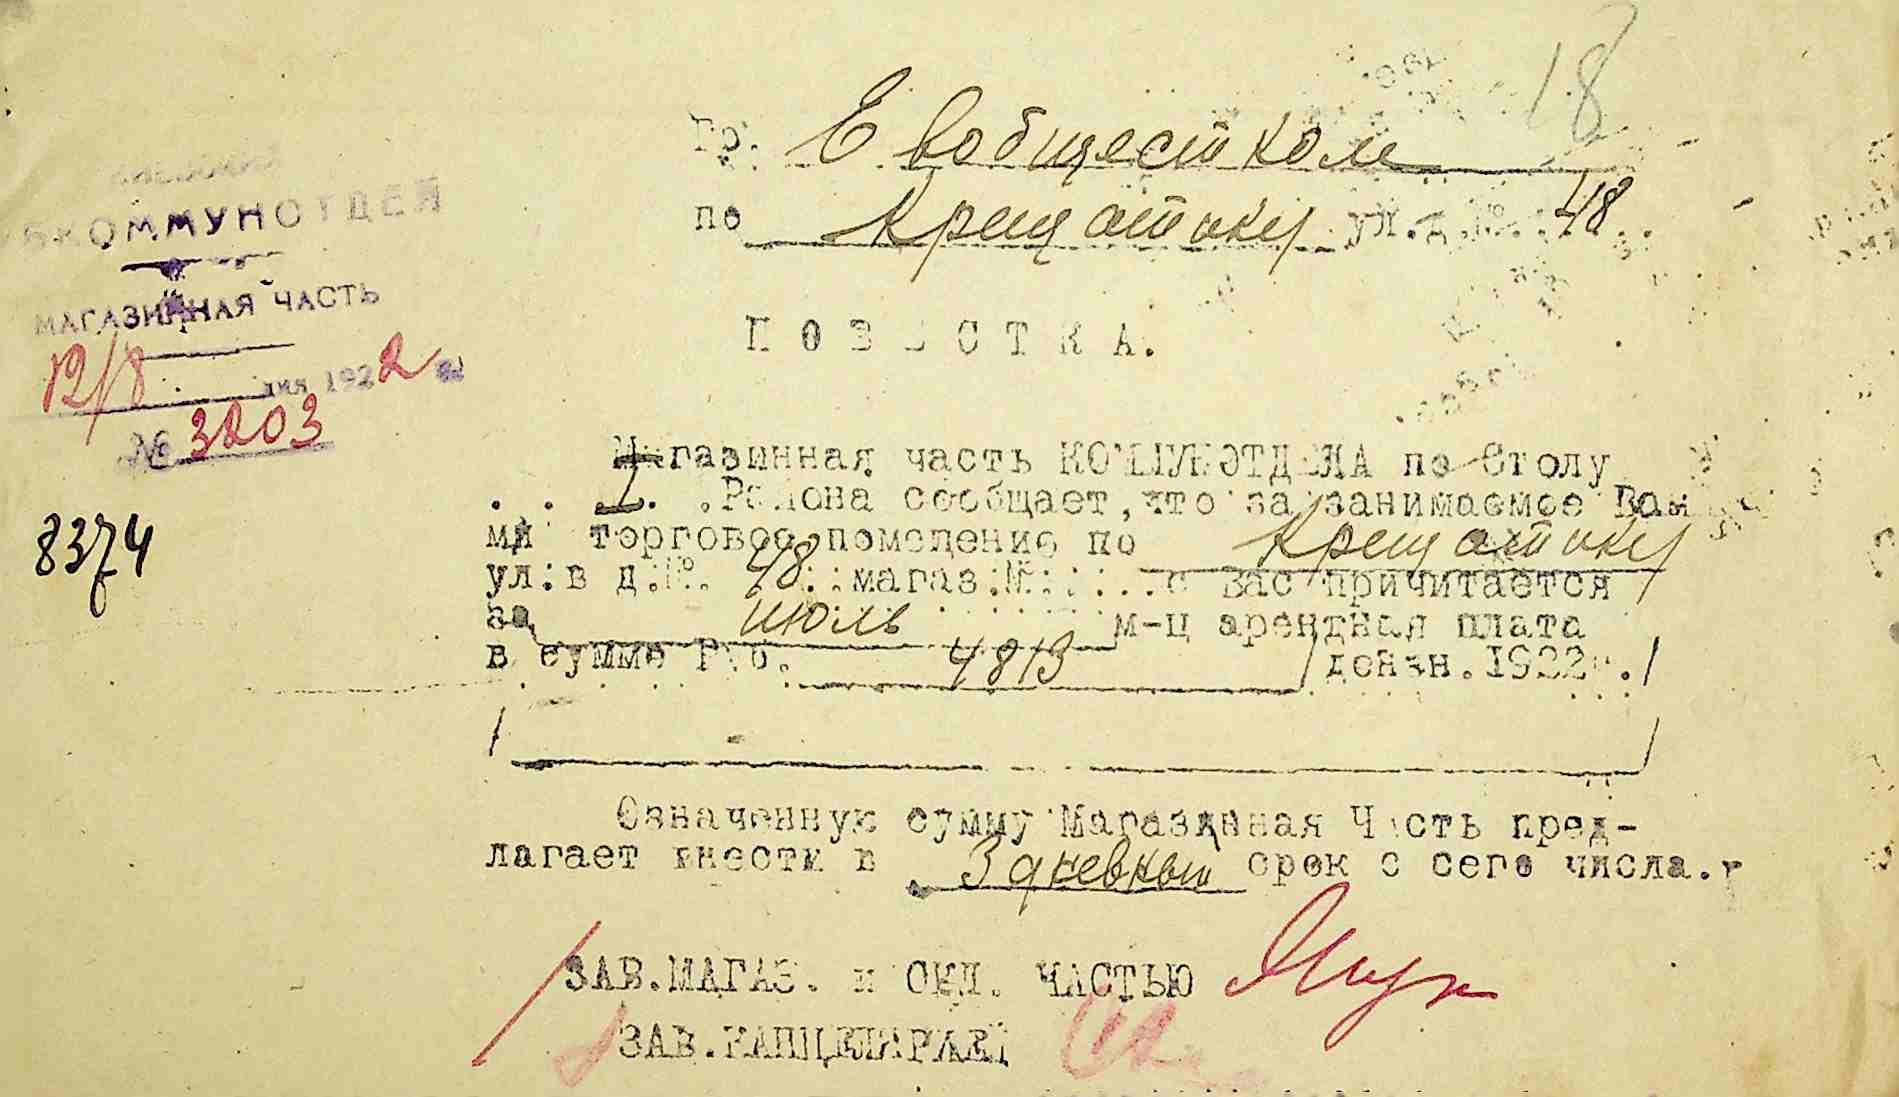 18
Гр. Евобщестком
по Крещатику ул. д. №. 48
КОММУНОТДЕЛ
МАГАЗИННАЯ ЧАСТЬ
12/8 дня 1922
№ 3203
8374
ПОВЕСТКА.
Магазинная часть КОММУНОТДЕЛА по Столу
I. Района сообщает, что за занимаемое Ва-
ми торговое помещение по Крещатику
ул. в д. №. 48 магаз. № с Вас причитается
за июль м-ц арендная плата
в сумме Руб. 4813 /дензн. 1922г./
Означенную сумму Магазинная Часть пред-
лагает внести в 3 дневный срок с сего числа.
ЗАВ. МАГАЗ. и СКЛ. ЧАСТЬЮ
ЗАВ. КАНЦЕЛЯРИЕЙ